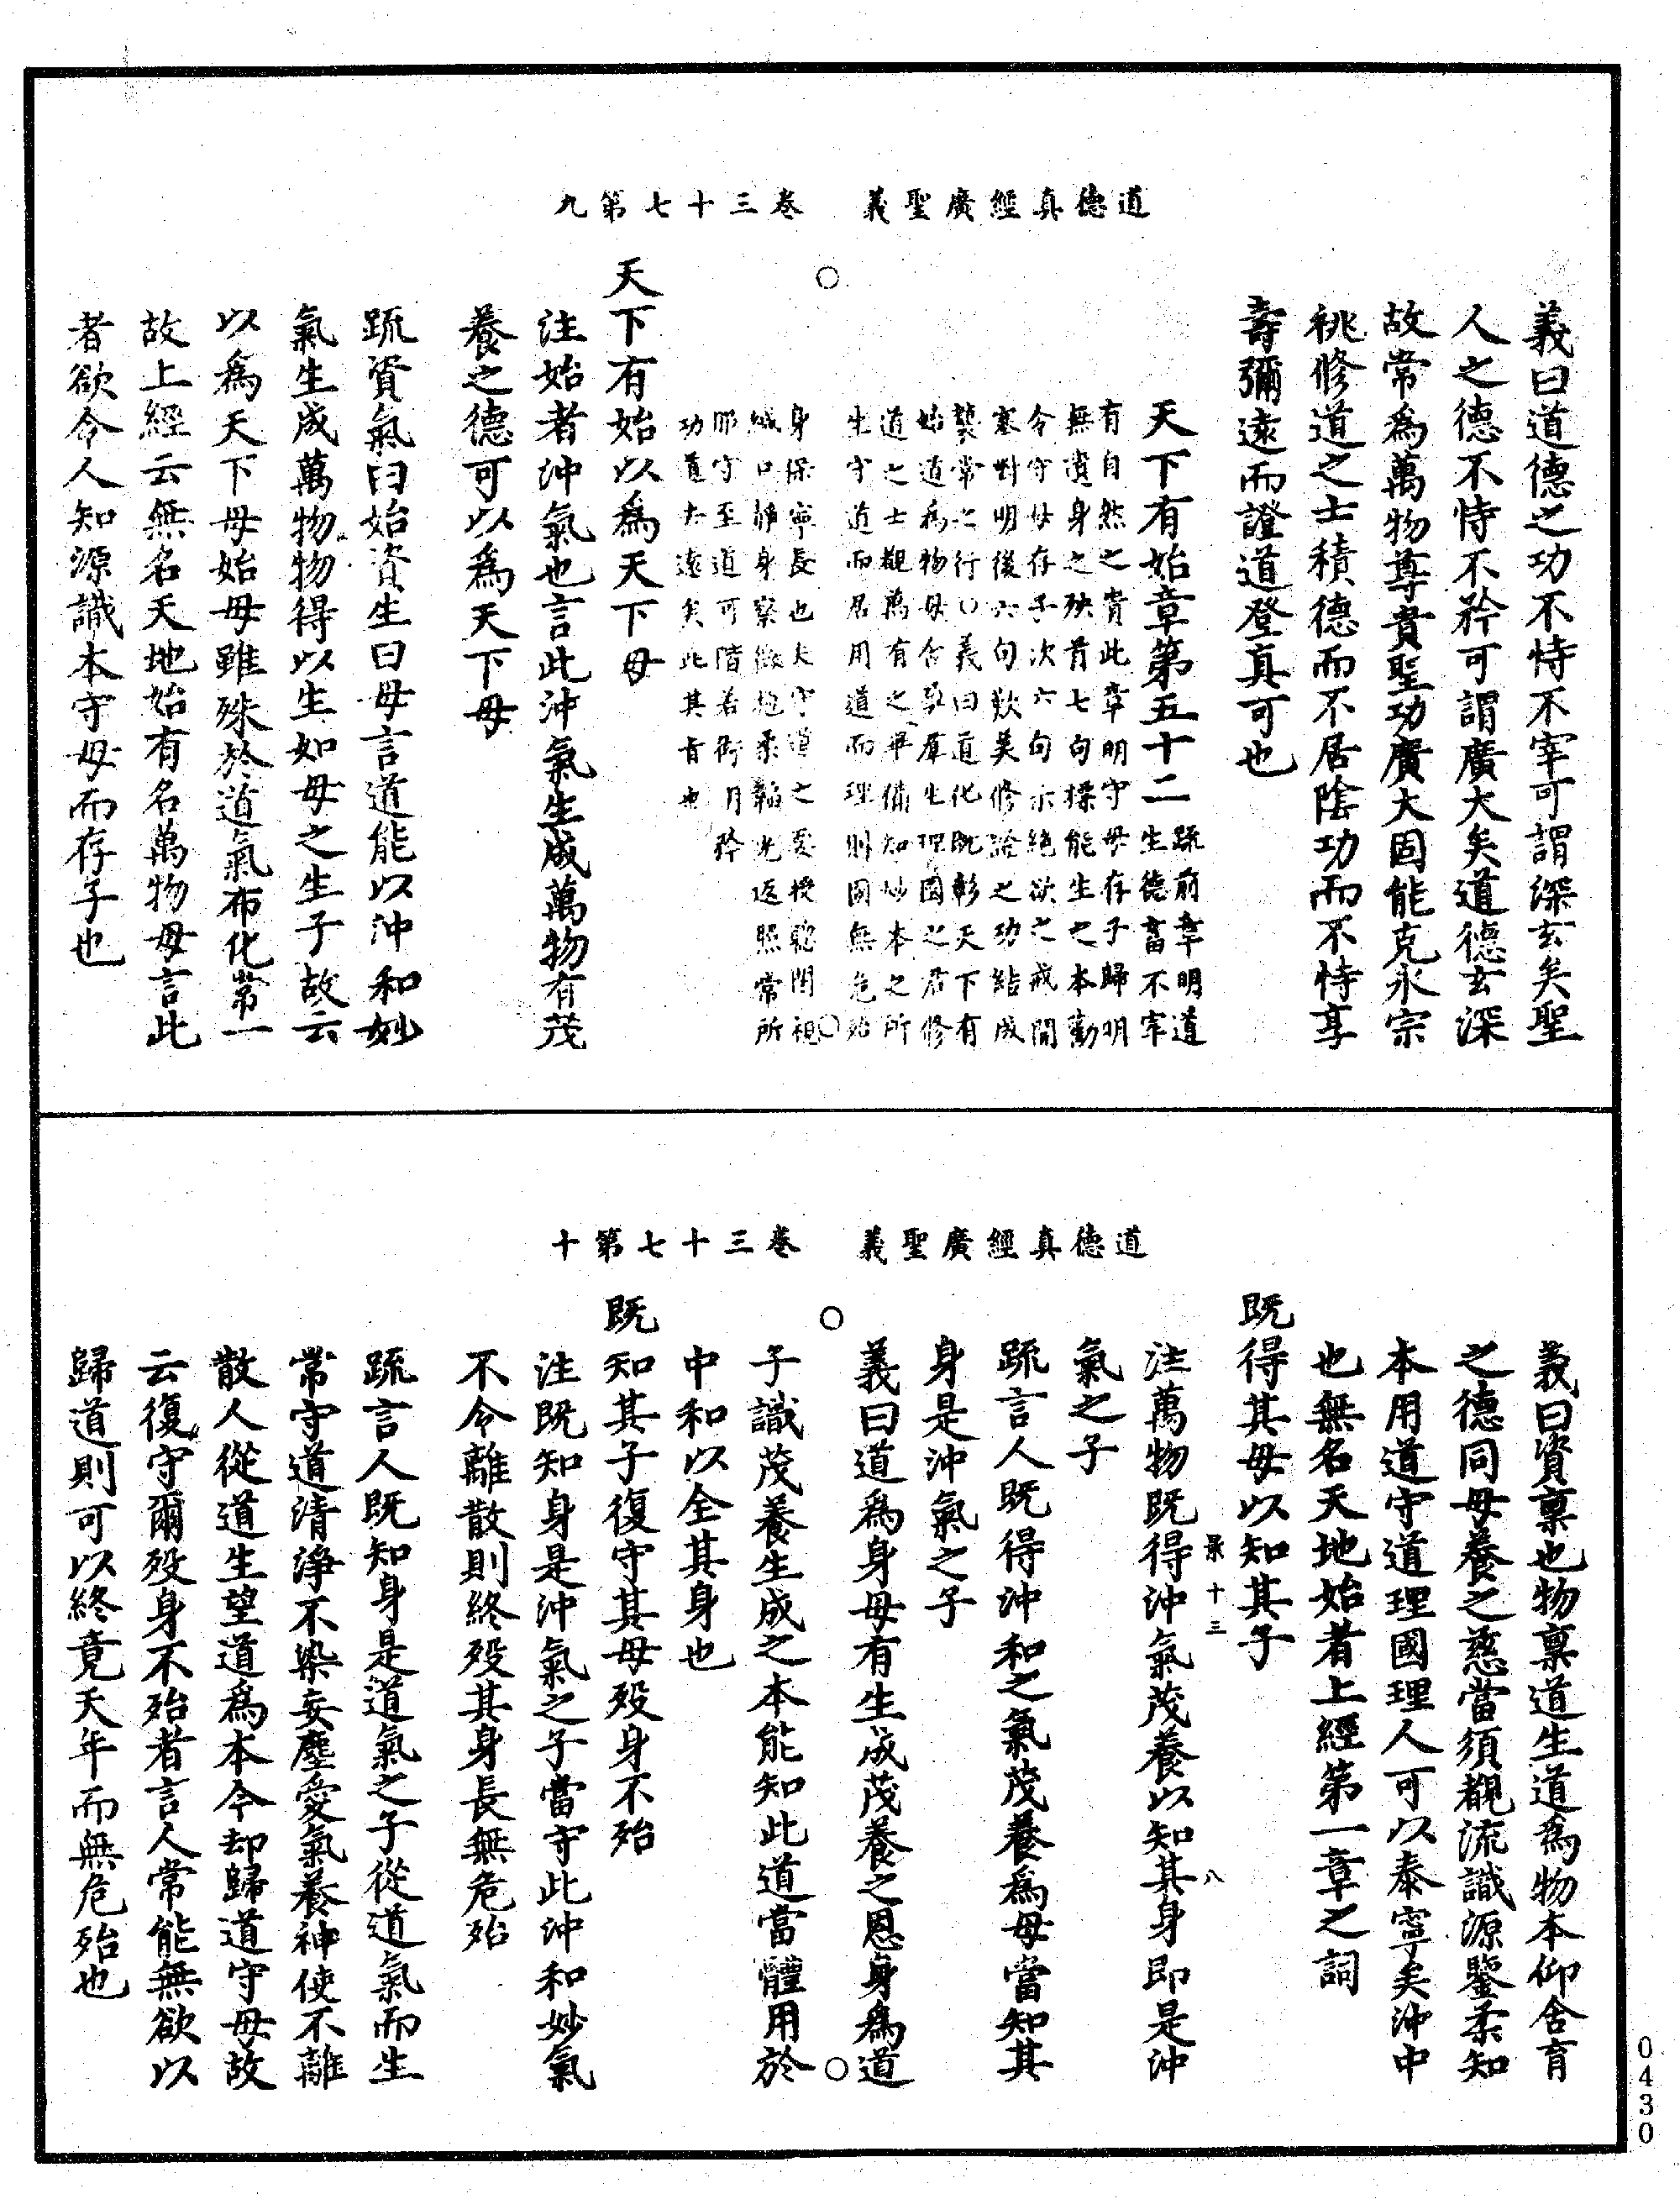 道德真經廣聖義　卷三十七第九
義曰道德之功不恃不宰可謂深玄矣聖
人之德不恃不矜可謂廣大矣道德玄深
故常為萬物尊貴聖功廣大固能克永宗
祧修道之士積德而不居陰功而不恃享
壽彌遠而證道登真可也
天下有始章第五十二
疏前章明道
生德畜不宰
有自然之貴此章明守母存子歸明
無遺身之殃首七句標能生之本勸
令守母存子次六句示絕欲之戒開
塞對明後六句歎美修證之功結成
襲常之行○義曰道化既彰天下有
始道為物母含孕羣生理國之君修
道之士觀萬有之畢備知妙本之所
生守道而居用道而理則固無危殆
○
身保寧長也夫守道之要授聰閉視
緘口靜身察微抱柔韜光返照常所
耶守至道可階若衒月矜
功道大遠矣此其旨也
天下有始以為天下母
注始者沖氣也言此沖氣生成萬物有茂
養之德可以為天下母
疏資氣曰始資生曰母言道能以沖和妙
氣生成萬物物得以生如母之生子故云
以為天下母始母雖殊於道氣布化常一
故上經云無名天地始有名萬物母言此
者欲令人知源識本守母而存子也
道德真經廣聖義　卷三十七第十
義曰資稟也物稟道生道為物本仰含育
之德同母養之慈當須覩流識源鑒柔知
本用道守道理國理人可以泰寧矣沖中
也無名天地始者上經第一章之詞
既得其母以知其子
景十三　八
注萬物既得沖氣茂養以知其身即是沖
氣之子
疏言人既得沖和之氣茂養為母當知其
身是沖氣之子
義曰道為身母有生成茂養之恩身為道
○　○
子識茂養生成之本能知此道當體用於
中和以全其身也
既知其子復守其母歿身不殆
注既知身是沖氣之子當守此沖和妙氣
不令離散則終歿其身長無危殆
疏言人既知身是道氣之子從道氣而生
常守道清淨不染妄塵愛氣養神使不離
散人從道生望道為本今却歸道守母故
云復守爾歿身不殆者言人常能無欲以
歸道則可以終竟天年而無危殆也
0430